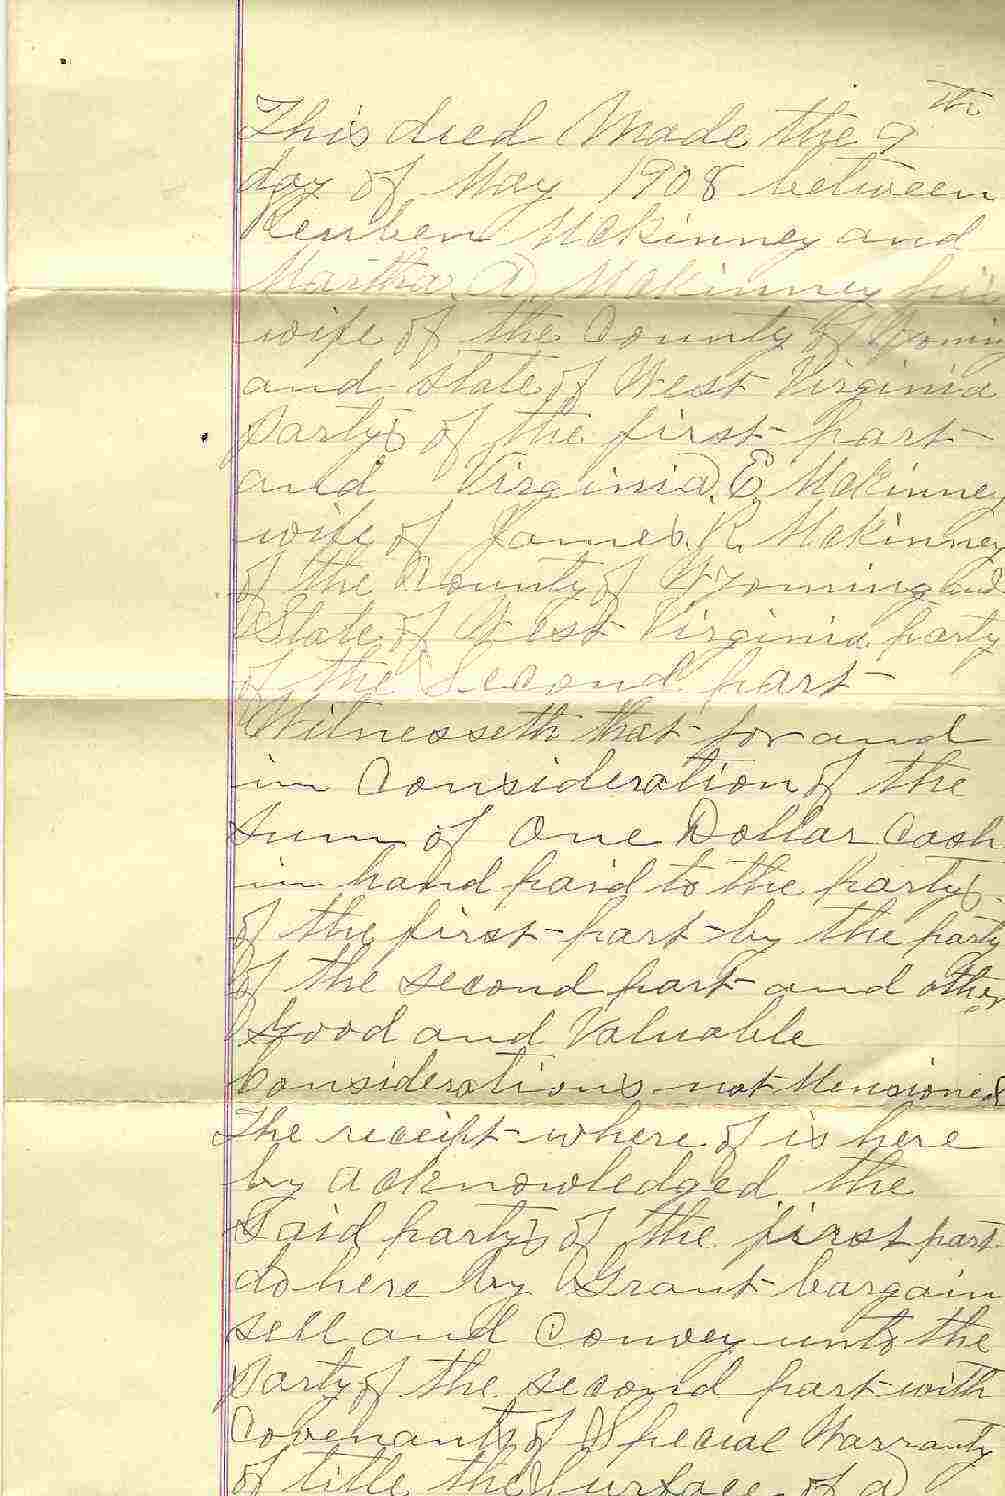 This deed Made the 9th
day of May 1908 between
Reuben McKinney and
Martha A McKinney his
wife of the County of Wyoming
and state of West Virginia
partys of the first part
and Virginia E McKinney
wife of James R. McKinney
of the County of Wyoming and
State of West Virginia party
of the Second part
Witnesseth that for and
in Consideration of the
Sum of One Dollar Cash
in hand paid to the partys
of the first part by the party
of the second part and other
Good and Valuable
Considerations not Mensioned
The receipt where of is here
by acknowledged the
Said partys of the first part
do here by Grant bargain
sell and Convey unto the
party of the second part with
Covenants of Special Warranty
of title the Surface of a